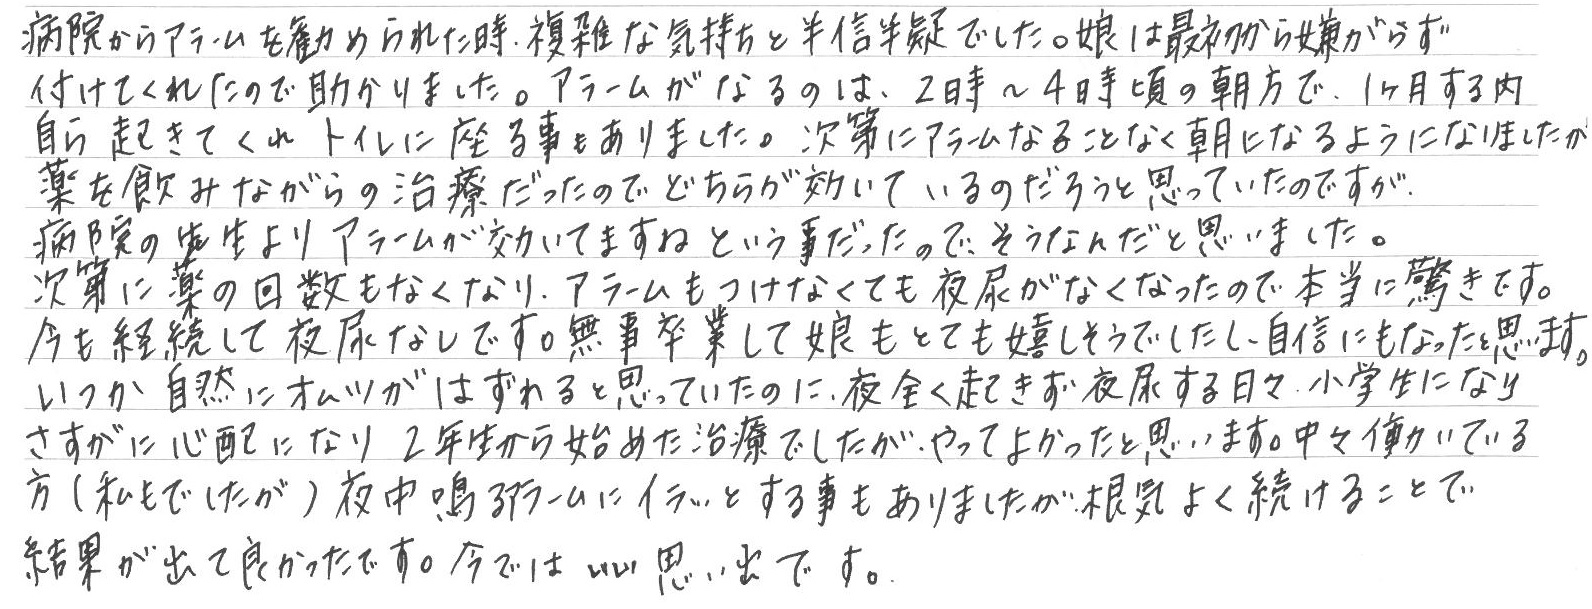 病院からアラームを勧められた時、複雑な気持ちと半信半疑でした。娘は最初から嫌がらず
付けてくれたので助かりました。アラームがなるのは、2時～4時頃の朝方で、1ヶ月する内
自ら起きてくれトイレに座る事もありました。次第にアラームなることなく朝になるようになりましたが
薬を飲みながらの治療だったのでどちらが効いているのだろうと思っていたのですが、
病院の先生よりアラームが効いてますねという事だったので、そうなんだと思いました。
次第に薬の回数もなくなり、アラームもつけなくても夜尿がなくなったので本当に驚きです。
今も経続して夜尿なしです。無事卒業して娘もとても嬉しそうでしたし、自信にもなったと思います。
いつか自然にオムツがはずれると思っていたのに、夜全く起きず夜尿する日々、小学生になり
さすがに心配になり2年生から始めた治療でしたが、やってよかったと思います。中々働かいている
方(私もでしたが)夜中鳴るアラームにイラッとする事もありましたが、根気よく続けることで
結果が出て良かったです。今ではいい思い出です。